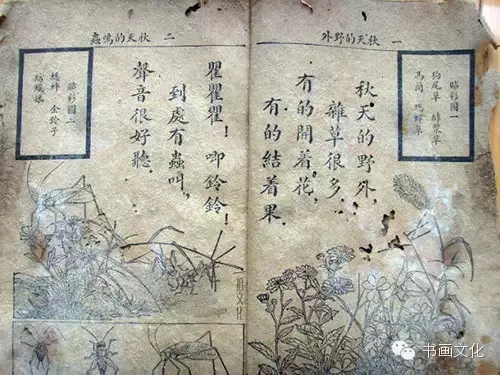 一 秋天的野外
貼彩圖一
狗尾草 酢漿草
馬蘭
秋天的野外，
雜草很多，
有的開着花，
有的結着果。
二 秋天的鳴蟲
瞿瞿瞿！唧鈴鈴！
到處有蟲叫，
聲音很好聽。
貼彩圖二
蟋蟀 金鈴子
紡織娘
文化
书画文化